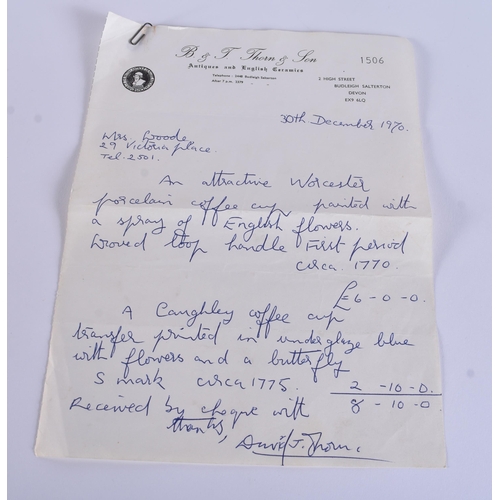 B & T Thorn & Son
1506
Antiques and English Ceramics
2 HIGH STREET
BUDLEIGH SALTERTON
DEVON
EX9 6LQ
30th December 1970.
Mrs. Goode
29 Victoria place.
Tel. 2501.
An attractive Worcester
porcelain coffee cup painted with
a spray of English flowers.
Grooved loop handle First period
circa 1770.
£=6-0-0.
A Caughley coffee cup
transfer printed in underglaze blue
with flowers and a butterfly
S mark circa 1775.
2 -10-0.
8 -10-0
Received by cheque with
thanks,
David J. Thorn.